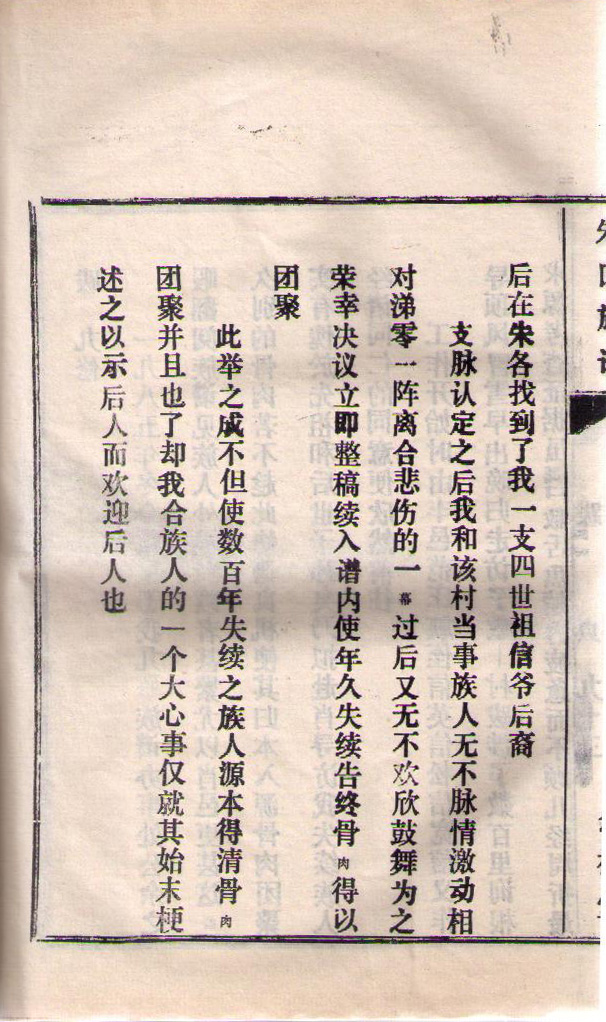 后在朱各找到了我一支四世祖信爷后裔
支脉认定之后我和该村当事族人无不脉情激动相
对涕零一阵离合悲伤的一幕过后又无不欢欣鼓舞为之
荣幸决议立即整稿续入谱内使年久失续告终骨肉得以
团聚
此举之成不但使数百年失续之族人源本得清骨肉
团聚并且也了却我合族人的一个大心事仅就其始末梗
述之以示后人而欢迎后人也